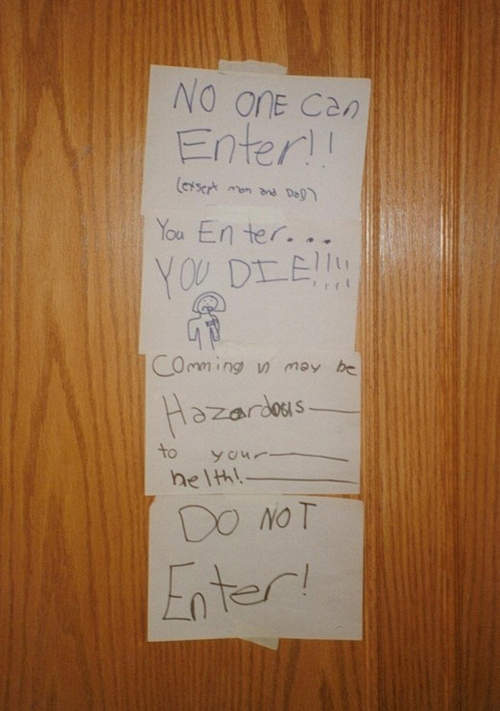 NO ONE can
Enter!!
(exsept mom and DaD)
You Enter...
YOU DIE!!!!
Comming n may be
Hazardosis
to your
helth!
DO NOT
Enter!